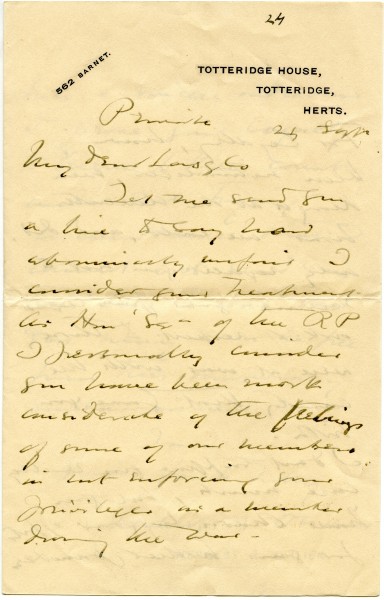 24
562 BARNET.
TOTTERIDGE HOUSE,
TOTTERIDGE,
HERTS.
Private
24 Sept
My dear Laszlo
Let me send you
a line to say how
abominably unfair I
consider your treatment
as Hon' Sec of the R P
I personally consider
you have been most
considerate of the feelings
of some of our members
in not enforcing your
privileges as a member
during the War -